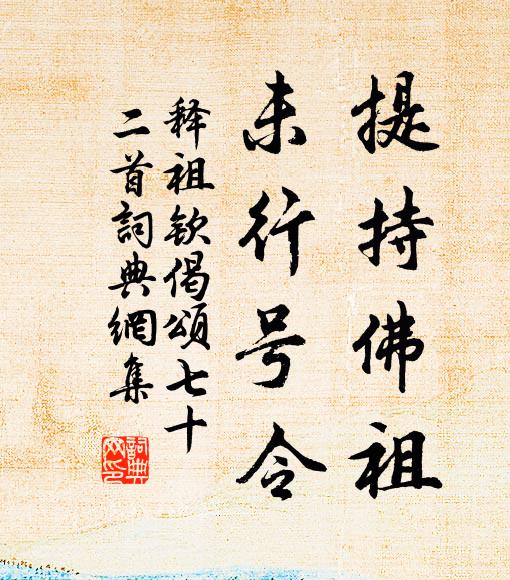 提持佛祖
未行号令
释祖钦偈頌七十
二首詞典網集
詞典網印